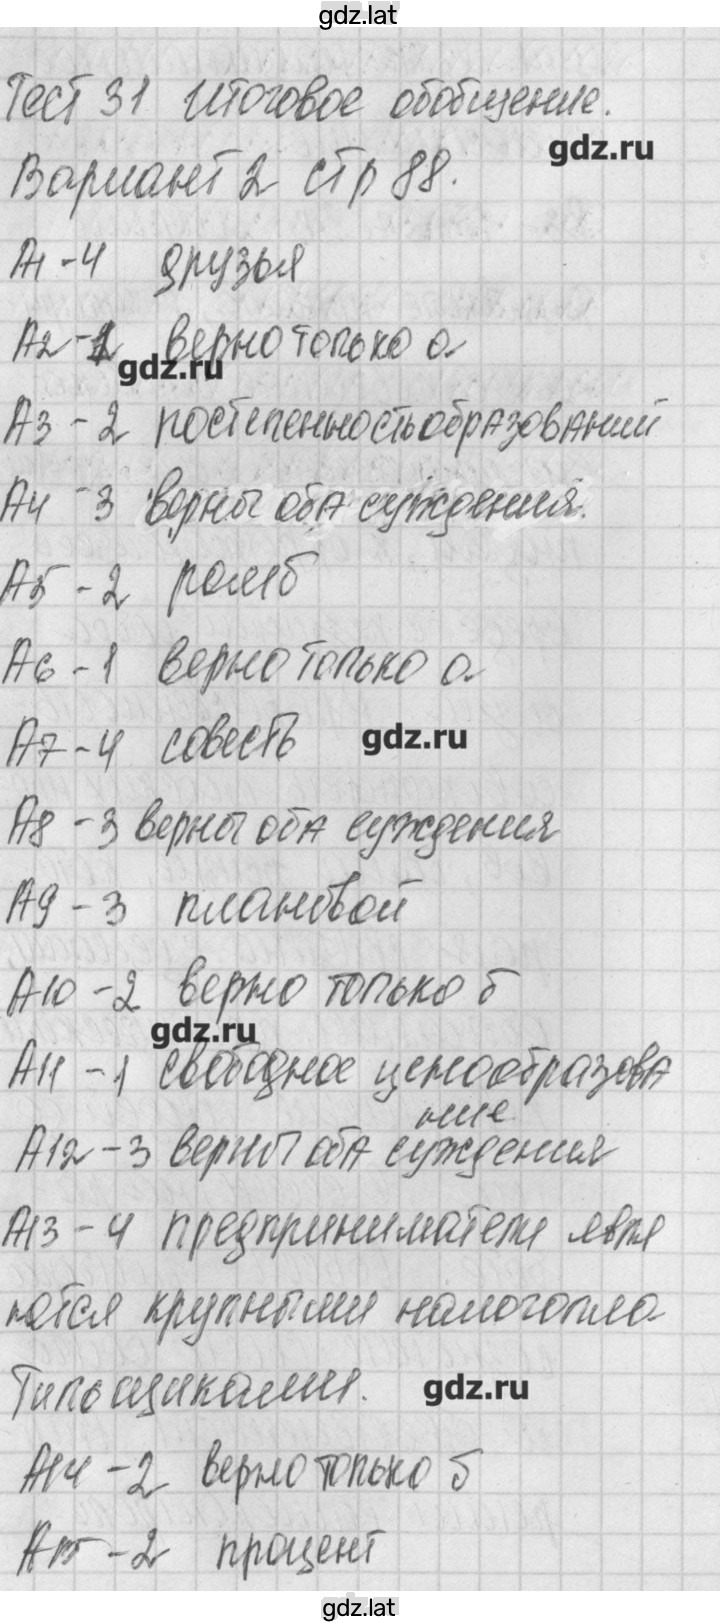 gdz.lat
Тест 31 Итоговое обобщение.
gdz.ru
Вариант 2 стр 88.
А1 - 4 друзья
А2 - 1 верно только а
gdz.ru
А3 - 2 постепенность образований
А4 - 3 верны оба суждения.
А5 - 2 ромб
А6 - 1 верно только а
А7 - 4 совесть
gdz.ru
А8 - 3 верны оба суждения
А9 - 3 плановой
А10 - 2 верно только б
gdz.ru
А11 - 1 свободное ценообразова
ние
А12 - 3 верны оба суждения
А13 - 4 предприниматели явля
ются крупными налогопла
тильщиками.
gdz.ru
А14 - 2 верно только б
А15 - 2 процент
gdz.lat